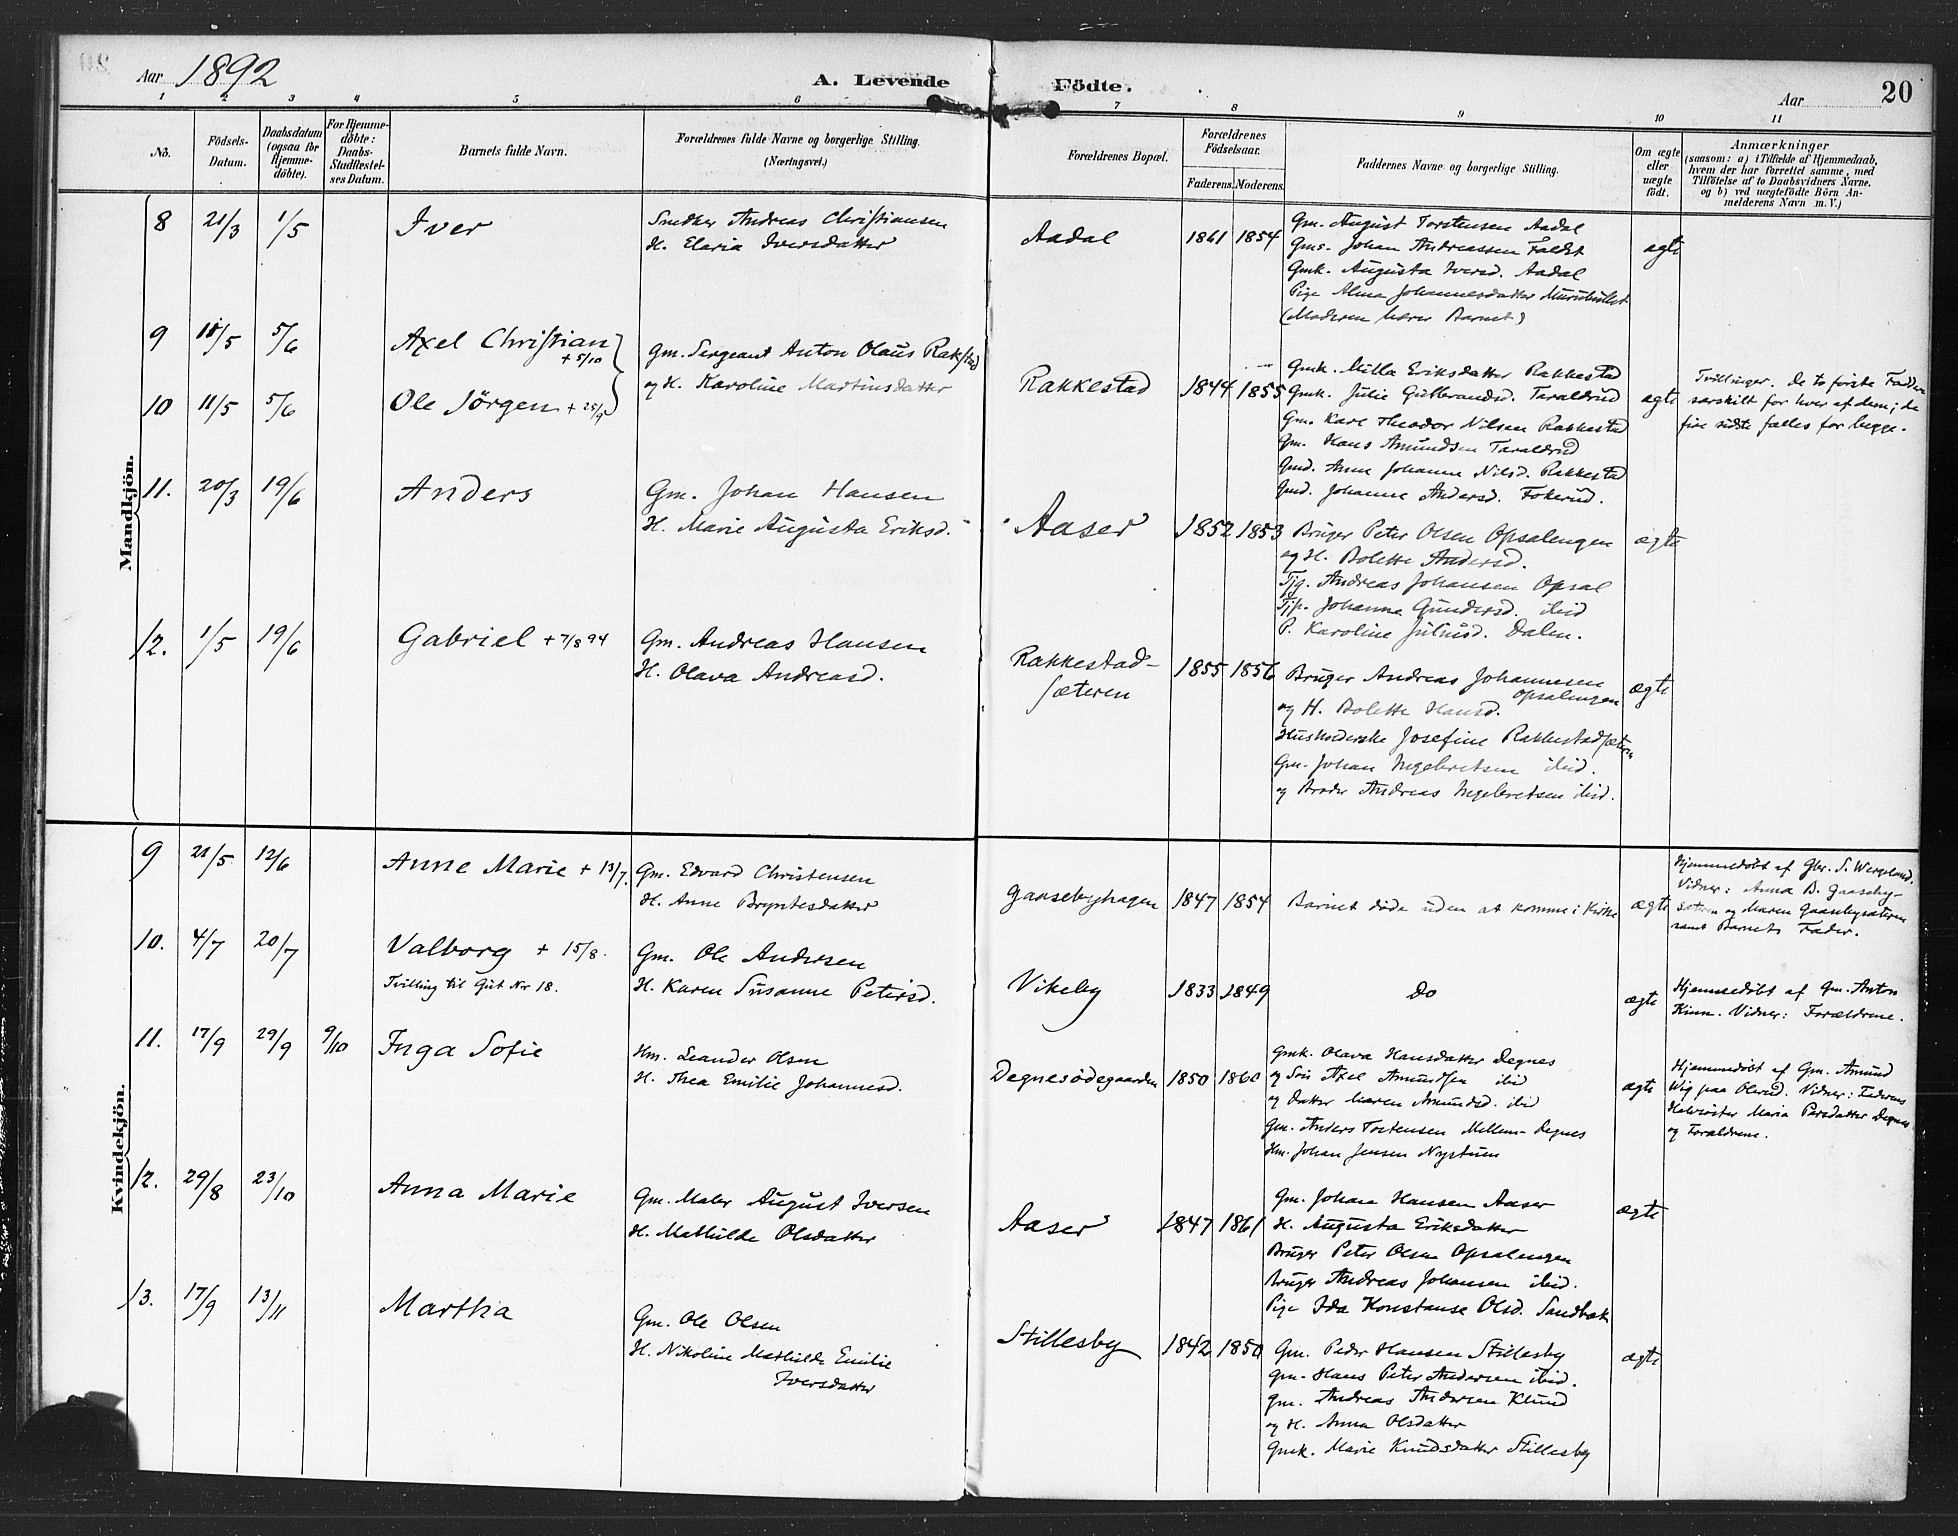 Aar 1892
A. Levende Födte.
Aar
20
1 2 3 4 5 6 7 8 9 10 11
No.
Födsels-
Datum.
Daabsdatum
(ogsaa for
Hjemme-
döbte).
For Hjemme-
döbte:
Daabs-
Stadfestel-
ses Datum.
Barnets fulde Navn.
Forældrenes fulde Navne og borgerlige Stilling.
(Næringsvei.)
Forældrenes Bopæl.
Forældrenes
Födselsaar.
Faderens. Moderens.
Faddernes Navne og borgerlige Stilling.
Om ægte
eller
uægte
födt.
Anmærkninger
(saasom: a) i Tilfælde af Hjemmedaab,
hvem der har forrettet samme, med
Tilföielse af to Daabsvidners Navne,
og b) ved uægtefödte Börn An-
melderens Navn m. V.)
Mandkjön.
8 21/3 1/5 Iver
Snedker Andreas Christiansen
H. Elaria Iversdatter
Aadal 1861 1854
Gm. August Torstensen Aadal
Gms. Johan Andreassen
Gmk. Augusta Iversd. Aadal
Pige Alma Johannesdatter
(Moderen bærer Barnet)
ægte
9 11/5 5/6 Axel Christian
+ 5/10
10 11/5 5/6 Ole Jörgen + 25/9
Gm. Sergeant Anton Olaus Rakkestad
og H. Karoline Martinsdatter
Rakkestad 1844 1855
Gmk. Milla Eriksdatter Rakkestad
Gmk. Julie Gulbrandsd. Taraldrud
Gm. Karl Theodor Nilsen Rakkestad
Gm. Hans Amundsen Taraldrud
Gmd. Anne Johanne Nilsd. Rakkestad
Gmd. Johanne Andersd. Fokerud.
ægte
Tvillinger. De to første Faddere
særskilt for hver af dem; de
fire sidste fælles for begge.
11. 20/3 19/6 Anders
Gm. Johan Hansen
H. Marie Augusta Eriksd.
Aaser 1852 1853
Bruger Peter Olsen Opsalengen
og H. Bolette Andersd.
Tjg. Andreas Johansen Opsal
Tjp. Johanne Gundersd. ibid
P. Karoline Juliusd. Dalen.
ægte
12. 1/5 19/6 Gabriel + 7/8 94
Gm. Andreas Hansen
H. Olava Andreasd.
Rakkestad-
sæteren
1855 1856
Bruger Andreas Johannesen
Opsalengen
og H. Bolette Hansd.
Husholderske Josefine Rakkestadsæteren
Gm. Johan Ingebretsen ibid.
og Broder Andreas Ingebretsen ibid.
ægte
Kvindekjön.
9 21/5 12/6 Anne Marie + 13/7.
Gm. Edvard Christensen
H. Anne Bryntesdatter
Gaasebyhagen 1847 1854
Barnet døde uden at komme i Kirke
ægte
Hjemmedøbt af Gbr. S. Wergeland.
Vidner: Anna B. Gaaseby-
sæteren og Maren Gaasebysæteren
samt Barnets Fader.
10. 4/7 20/7 Valborg + 15/8.
Tvilling til Gut Nr 18.
Gm. Ole Andersen
H. Karen Susanne Petersd.
Vikeby 1833 1849
Do
ægte
Hjemmedøbt af Gm. Anton
Kinn. Vidner: Forældrene.
11. 17/9 29/9 9/10 Inga Sofie
Hm. Leander Olsen
H. Thea Emilie Johannesd.
Degnesødegaarden 1850 1860
Gmk. Olava Hansdatter Degnes
og Søn Axel Amundsen ibid
og Datter Maren Amundsd. ibid
Gm. Anders Torstensen Mellem-Degnes
Hm. Johan Jensen Nystuen
ægte
Hjemmedøbt af Gm. Amund
Wig paa Olerud. Vidner: Faderens
Halvsøster Maria Parsdatter Degnes
og Forældrene.
12. 29/8 23/10 Anna Marie
Gm. Maler August Iversen
H. Mathilde Olsdatter
Aaser 1847 1861
Gm. Johan Hansen Aaser
H. Augusta Eriksdatter
Bruger Peter Olsen Opsalengen
Bruger Andreas Johansen ibid.
Pige Ida Konstanse Olsd. Sandbæk
ægte
13. 17/9 13/11 Martha
Gm. Ole Olsen
H. Nikoline Mathilde Emilie
Iversdatter
Stillesby 1842 1850
Gm. Peder Hansen Stillesby
Gm. Hans Peter Andersen ibid.
Gm. Andreas Andersen Klund
og H. Anna Olsdatter
Gmk. Marie Knudsdatter Stillesby
ægte